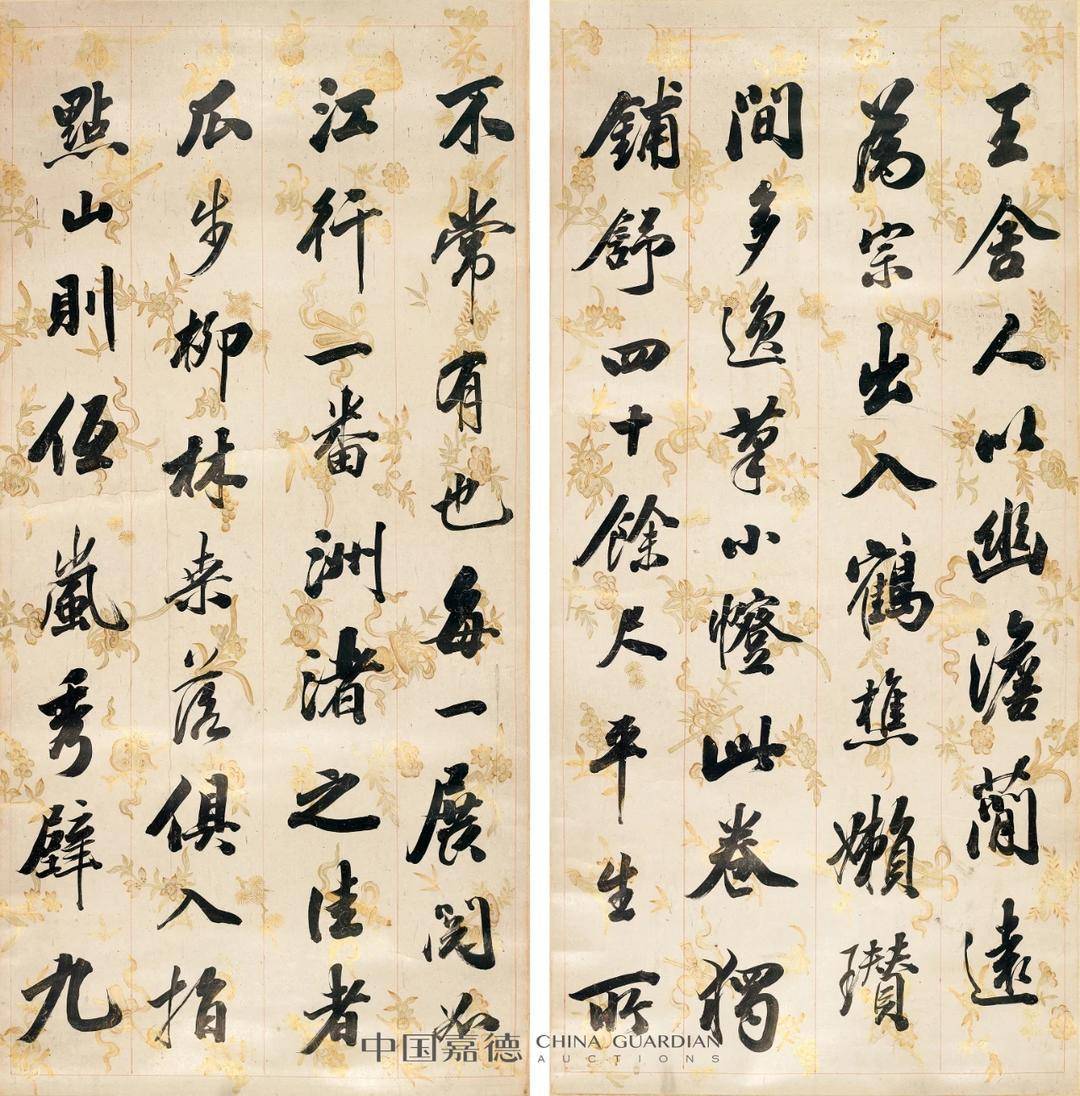 王舍人以幽澹簡遠
為宗出入鶴樵嬾瓚
間多逸筆小此卷獨
鋪舒四十餘尺平生所
不常有也每一展閱如
江行一番洲渚之佳者
瓜步柳林桑落俱入指
點山則嵐秀壁九
中国嘉德 CHINA GUARDIAN
AUCTIONS